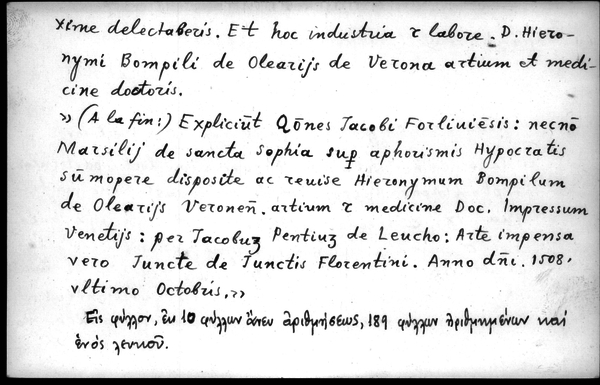 xime delectaberis. Et hoc industria ⁊ labore. D. Hiero-
nymi Bompili de Olearijs de Verona artium et medi-
cine doctoris.
» (A la fin:) Expliciūt Qōnes Jacobi Forliuiēsis: necnō
Marsilij de sancta sophia sup̱ aphorismis Hypocratis
sūmopere disposite ac reuise Hieronymum Bompilum
de Olearijs Veroneñ. artium ⁊ medicine Doc. Impressum
Venetijs: per Jacobuʒ Pentiuʒ de Leucho: Arte impensa
vero Juncte de Junctis Florentini. Anno dñi. 1508.
vltimo Octobris.»
Εἰς φύλλον, ἐκ 10 φύλλων ἄνευ ἀριθμήσεως, 189 φύλλων ἀριθμημένων καί
ἑνός λευκοῦ.